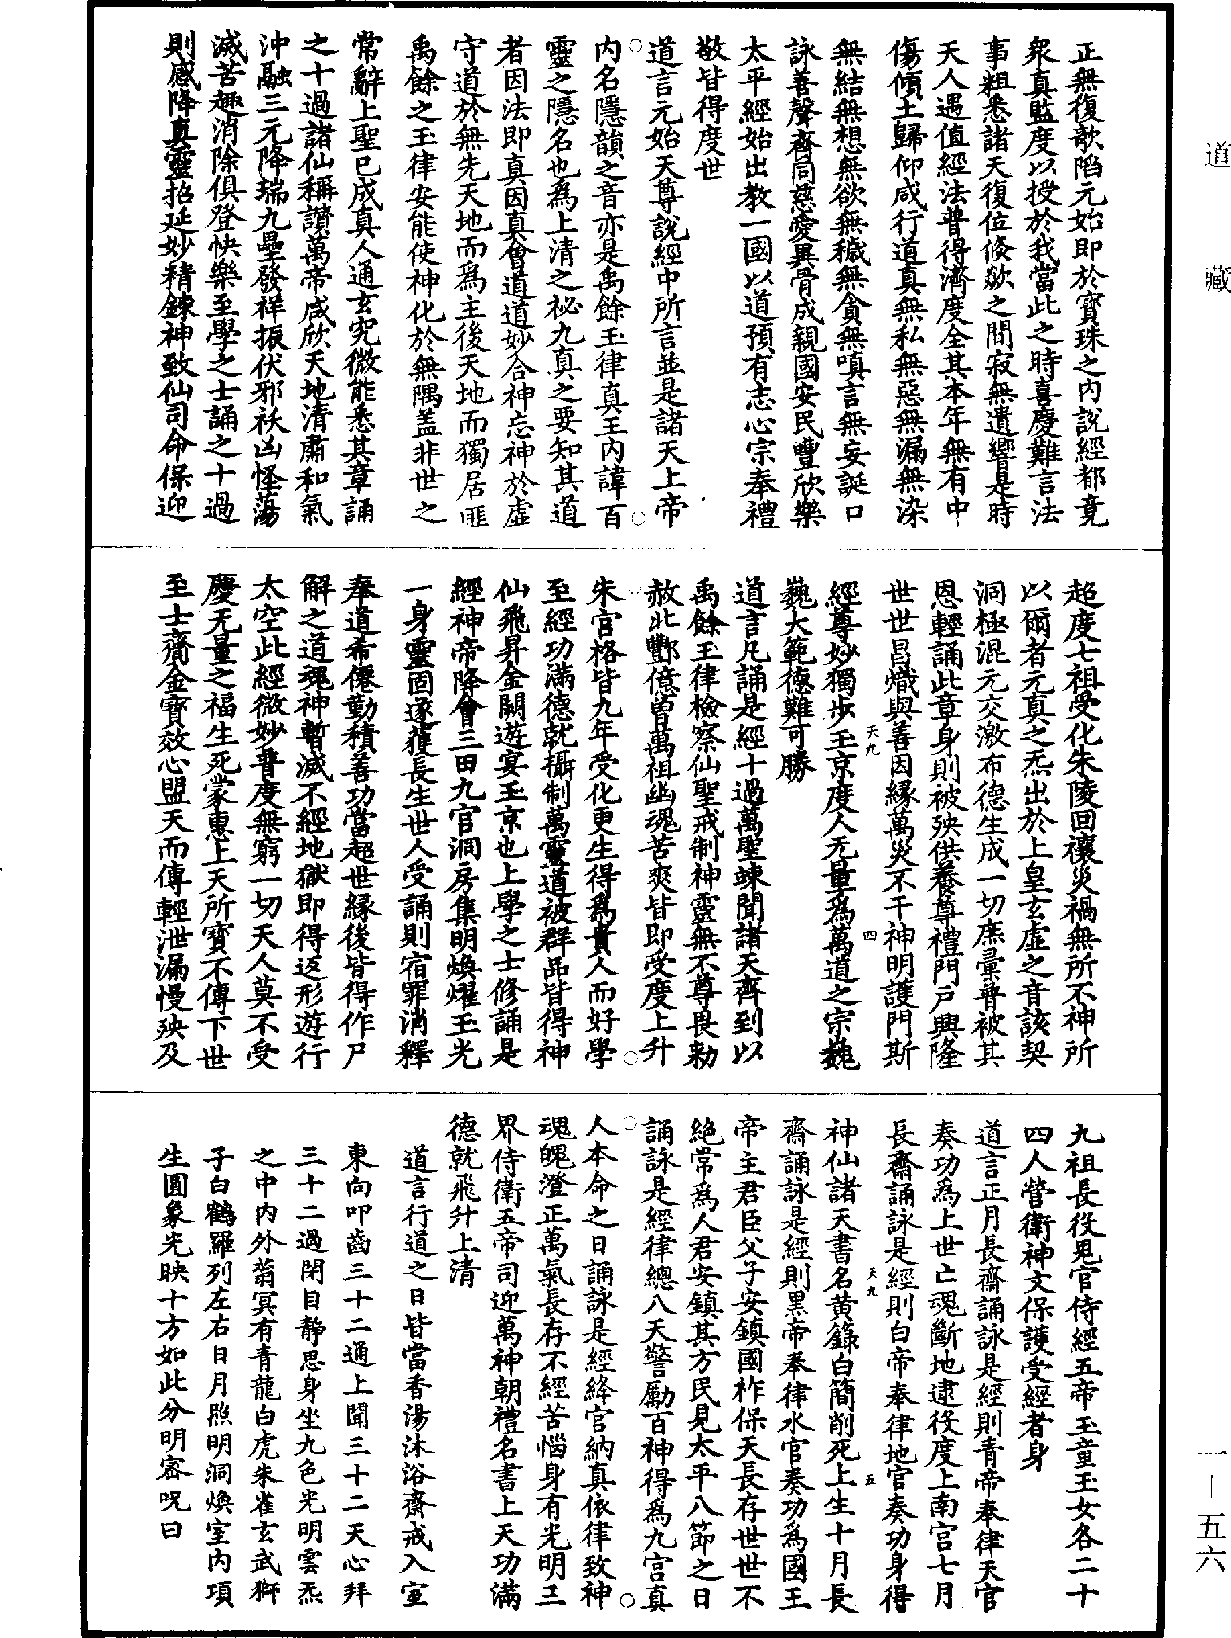 道藏
正無復歆陷元始即於寶珠之內說經都竟
衆真監度以授於我當此之時喜慶難言法
事粗悉諸天復位倏歘之間寂無遺響是時
天人遇值經法普得濟度全其本年無有中
傷傾土歸仰咸行道真無私無惡無漏無染
無結無想無欲無穢無貪無嗔言無妄誕口
詠善聲齊同慈愛異骨成親國安民豐欣樂
太平經始出教一國以道預有志心宗奉禮
敬皆得度世
道言元始天尊說經中所言並是諸天上帝
內名隱韻之音亦是禹餘玉律真王內諱百
靈之隱名也為上清之祕九真之要知其道
者因法即真因真會道道妙合神忘神於虛
守道於無先天地而為主後天地而獨居匪
禹餘之玉律安能使神化於無隅蓋非世之
常辭上聖已成真人通玄究微能悉其章誦
之十過諸仙稱讚萬帝咸欣天地清肅和氣
沖融三元降瑞九壘發祥振伏邪祅凶怪蕩
滅苦趣消除俱登快樂至學之士誦之十過
則感降真靈招延妙精鍊神致仙司命保迎
超度七祖受化朱陵回禳災禍無所不神所
以爾者元真之炁出於上皇玄虛之音該契
洞極混元交激布德生成一切庶彙普被其
恩輕誦此章身則被殃供養尊禮門戶興隆
世世昌熾與善因緣萬災不干神明護門斯
經尊妙獨步玉京度人无量為萬道之宗巍
巍大範德難可勝
道言凡誦是經十過萬聖竦聞諸天齊到以
禹餘玉律檢察仙聖戒制神靈無不尊畏勑
赦北酆億曾萬祖幽魂苦爽皆即受度上升
朱宮格皆九年受化更生得為貴人而好學
至經功滿德就攝制萬靈道被群品皆得神
仙飛昇金闕遊宴玉京也上學之士修誦是
經神帝降會三田九宮洞房集明煥耀玉光
一身靈固遂獲長生世人受誦則宿罪消釋
奉道希僊勤積善功當超世緣後皆得作尸
解之道魂神暫滅不經地獄即得返形遊行
太空此經微妙普度無窮一切天人莫不受
慶无量之福生死蒙惠上天所寶不傳下世
至士齎金寶效心盟天而傳輕泄漏慢殃及
九祖長役鬼官侍經五帝玉童玉女各二十
四人營衛神文保護受經者身
道言正月長齋誦詠是經則青帝奉律天官
奏功為上世亡魂斷地逮役度上南宮七月
長齋誦詠是經則白帝奉律地官奏功身得
神仙諸天書名黃籙白簡削死上生十月長
齋誦詠是經則黑帝奉律水官奏功為國王
帝主君臣父子安鎮國祚保天長存世世不
絕常為人君安鎮其方民見太平八節之日
誦詠是經律總八天警勵百神得為九宮真
人本命之日誦詠是經絳官納真依律致神
魂魄澄正萬氣長存不經苦惱身有光明三
界侍衛五帝司迎萬神朝禮名書上天功滿
德就飛升上清
道言行道之日皆當香湯沐浴齋戒入室
東向叩齒三十二通上聞三十二天心拜
三十二過閉目靜思身坐九色光明雲炁
之中內外蓊冥有青龍白虎朱雀玄武獅
子白鶴羅列左右日月照明洞煥室內項
生圓象光映十方如此分明密呪曰
天九 四
天九 五
一－五六